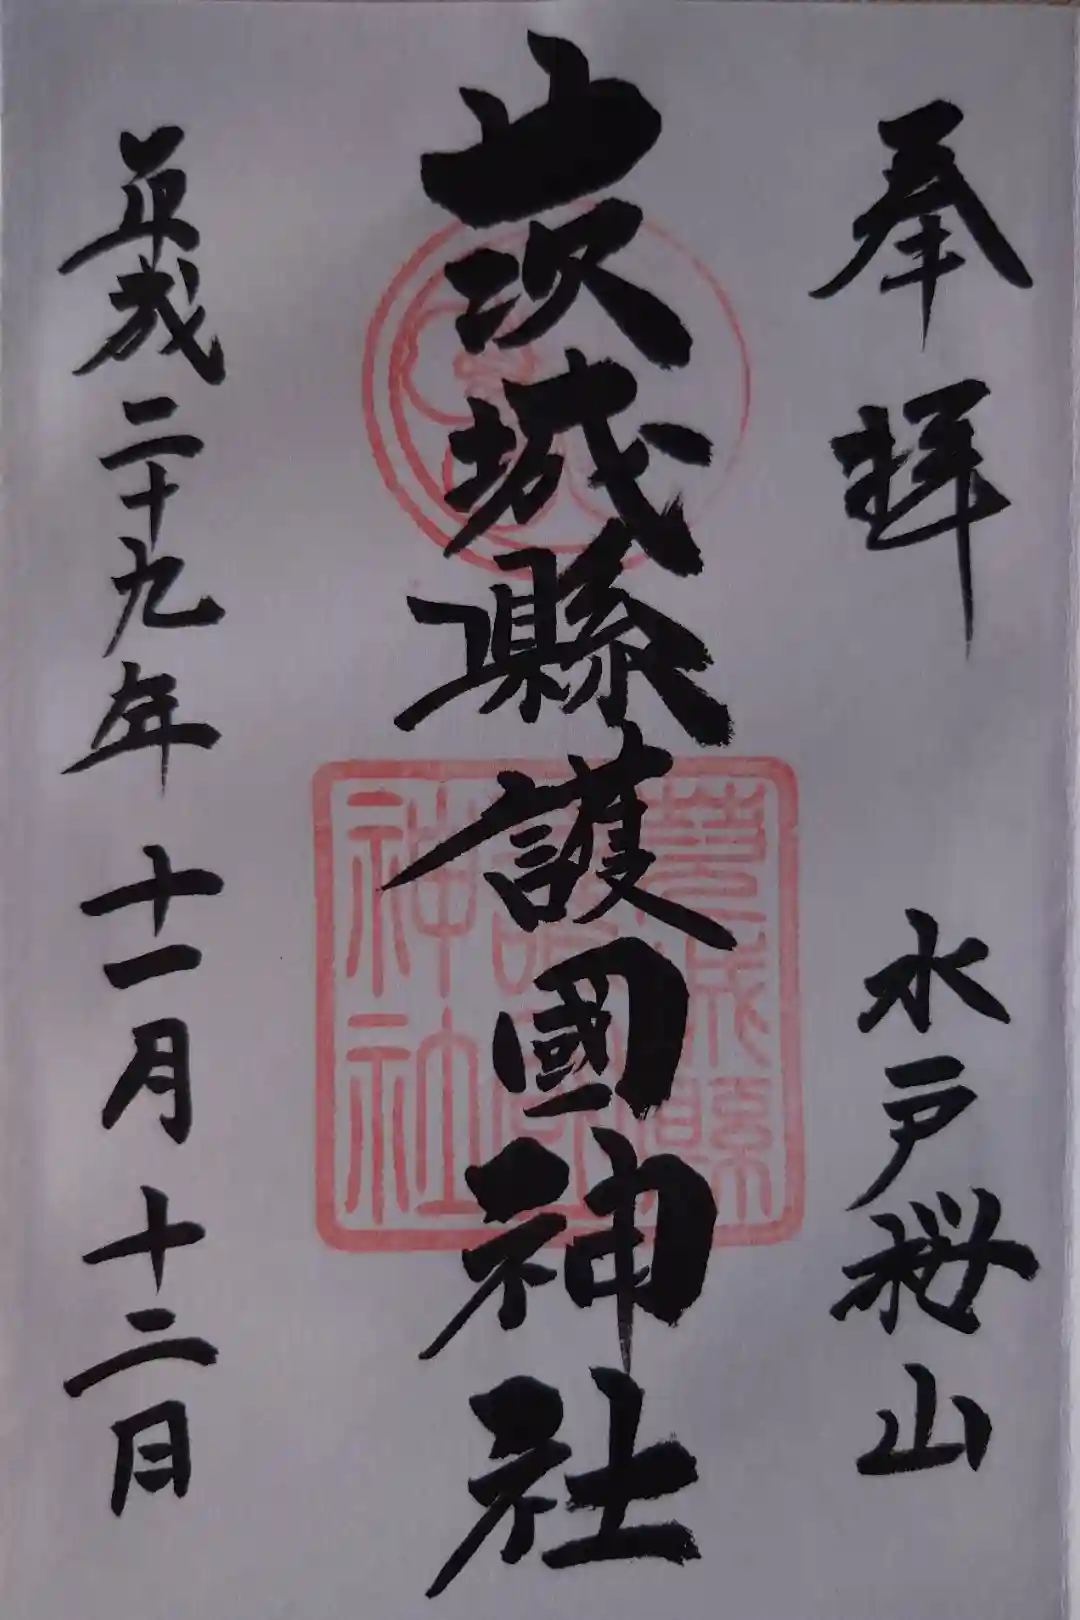 奉拝
水戸桜山
茨城縣護國神社
茨城縣
護國
神社
平成二十九年十一月十二日